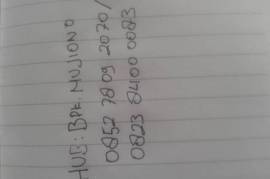 HUB: BPK. MUJIONO
0852 7809 2070/
0823 8400 0083